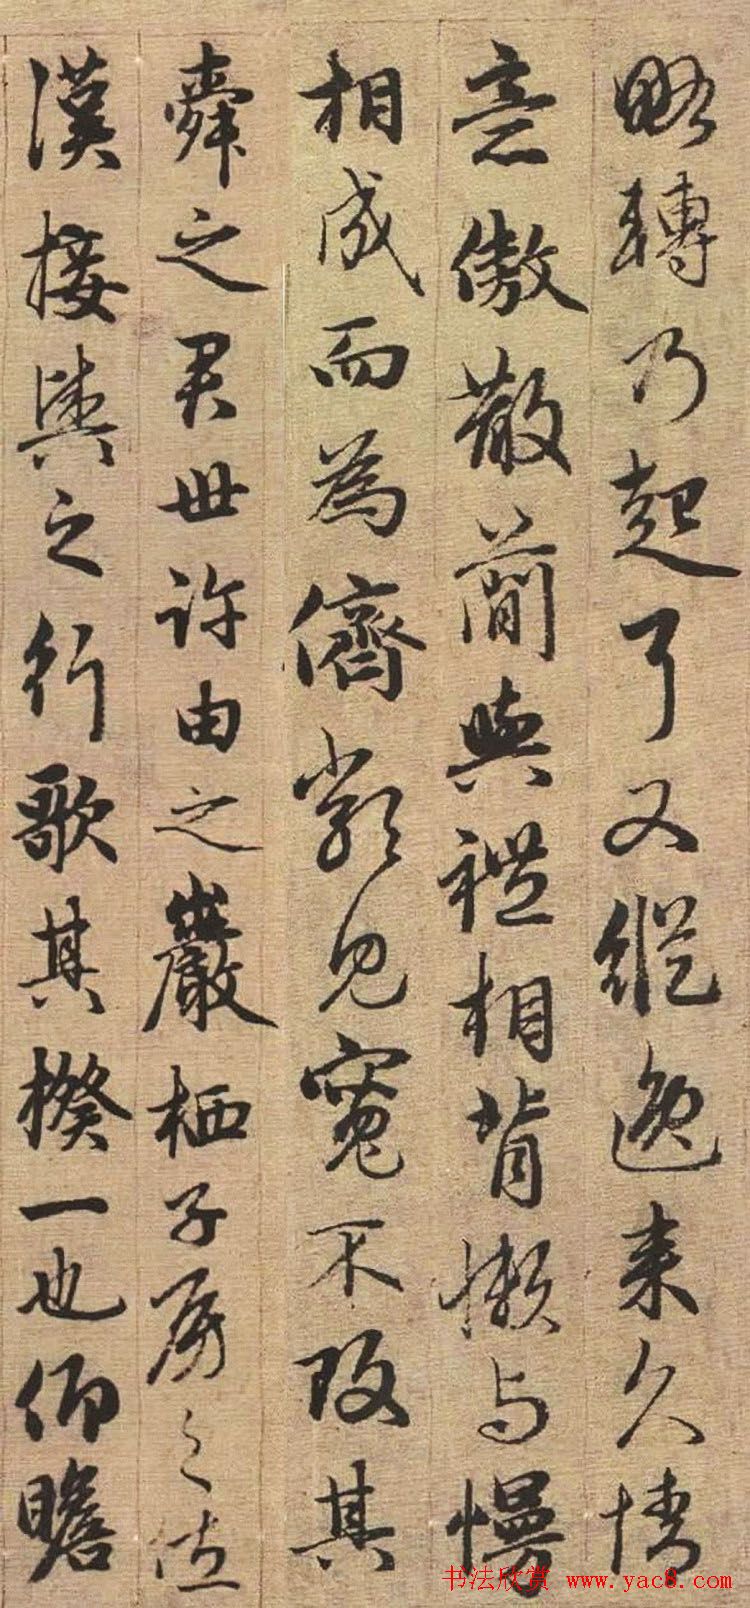 略轉乃起耳又縱逸来久情
意傲散簡與禮相背懶与慢
相成而為儕類見寬不攻其
舜之君世許由之巖栖子房之佐
漢接輿之行歌其揆一也仰瞻
书法欣赏 www.yac8.com